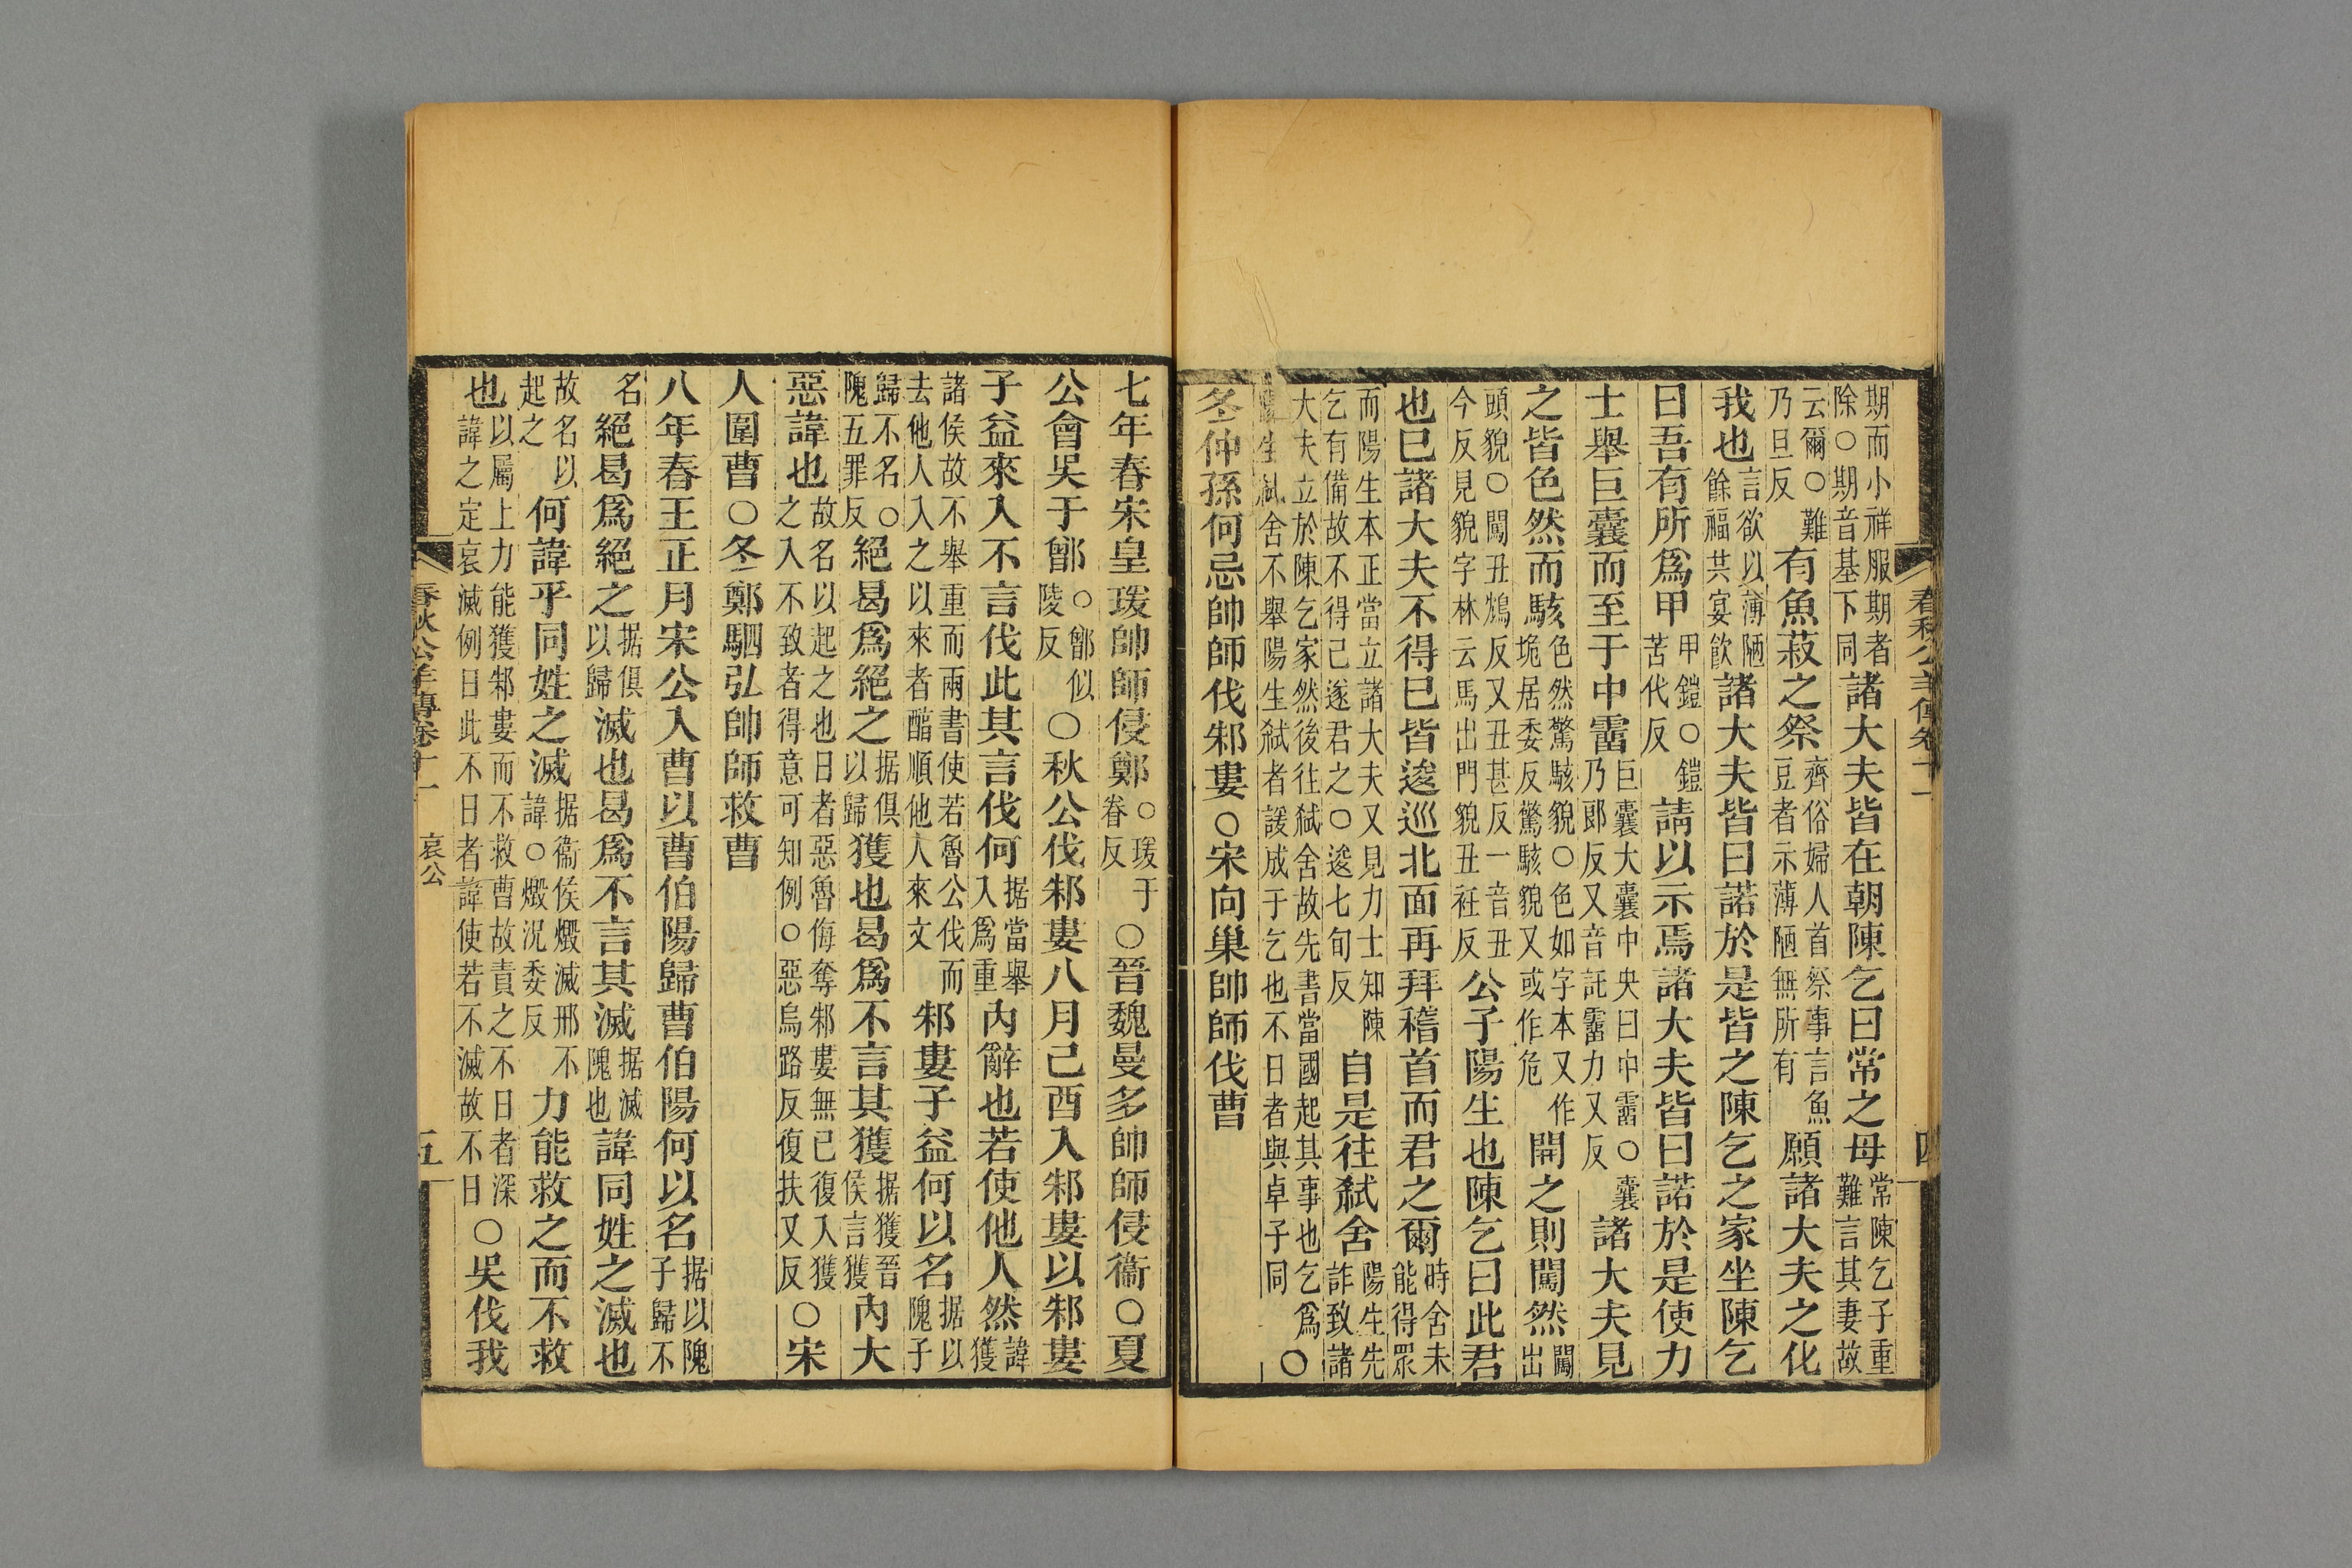 期而小祥服期者除○期音基下同諸大夫皆在朝陳乞曰常之母常陳乞子重難言其妻故
云爾○難乃旦反有魚菽之祭齊俗婦人首祭事言魚豆者示薄陋無所有願諸大夫之化
我也言欲以薄陋餘福共宴飲諸大夫皆曰諾於是皆之陳乞之家坐陳乞
曰吾有所爲甲甲鎧○鎧苦代反請以示焉諸大夫皆曰諾於是使力
士舉巨囊而至于中霤巨囊大囊中央曰中霤○囊乃郎反又音託霤力又反諸大夫見
之皆色然而駭色然驚駭貌○色如字本又作垝居委反驚駭貌又或作危開之則闖然闖出
頭貌○闖丑鴆反又丑甚反一音丑今反見貌字林云馬出門貌丑衽反公子陽生也陳乞曰此君
也已諸大夫不得已皆逡巡北面再拜稽首而君之爾時舍未能得眾
而陽生本正當立諸大夫又見力士知陳乞有備故不得已遂君之○逡七旬反自是往弒舍陽生先詐致諸
大夫立於陳乞家然後往弒舍故先書當國起其事也乞爲陽生弒舍不舉陽生弒者諼成于乞也不日者與卓子同○
冬仲孫何忌帥師伐邾婁○宋向巢帥師伐曹
春秋公羊傳卷十一
四
七年春宋皇瑗帥師侵鄭○瑗于眷反○晉魏曼多帥師侵衞○夏
公會吳于鄫○鄫似陵反○秋公伐邾婁八月己酉入邾婁以邾婁
子益來入不言伐此其言伐何据當舉入爲重內辭也若使他人然諱獲
諸侯故不舉重而兩書使若魯公伐而去他人入之以來者醧順他人來文邾婁子益何以名据以隗子
歸不名○隗五罪反絕曷爲絕之据俱以歸獲也曷爲不言其獲据獲晉侯言獲內大
惡諱也故名以起之也日者惡魯侮奪邾婁無已復入獲之入不致者得意可知例○惡烏路反復扶又反○宋
人圍曹○冬鄭駟弘帥師救曹
八年春王正月宋公入曹以曹伯陽歸曹伯陽何以名据以隗子歸不
名絕曷爲絕之据俱以歸滅也曷爲不言其滅据滅隗也諱同姓之滅也
故名以起之何諱乎同姓之滅据衞侯燬滅邢不諱○燬況委反力能救之而不救
也以屬上力能獲邾婁而不救曹故責之不日者深諱之定哀滅例日此不日者諱使若不滅故不日○吳伐我
春秋公羊傳卷十一
哀公
五